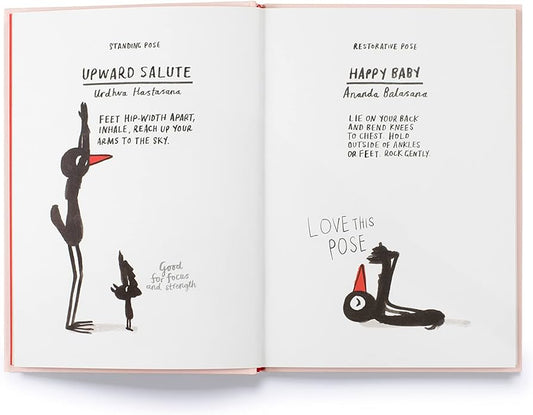 STANDING POSE
UPWARD SALUTE
Urdhva Hastasana
FEET HIP-WIDTH APART,
INHALE, REACH UP YOUR
ARMS TO THE SKY.
Good
for focus
and strength
RESTORATIVE POSE
HAPPY BABY
Ananda Balasana
LIE ON YOUR BACK
AND BEND KNEES
TO CHEST. HOLD
OUTSIDE OF ANKLES
OR FEET. ROCK GENTLY.
LOVE THIS
POSE